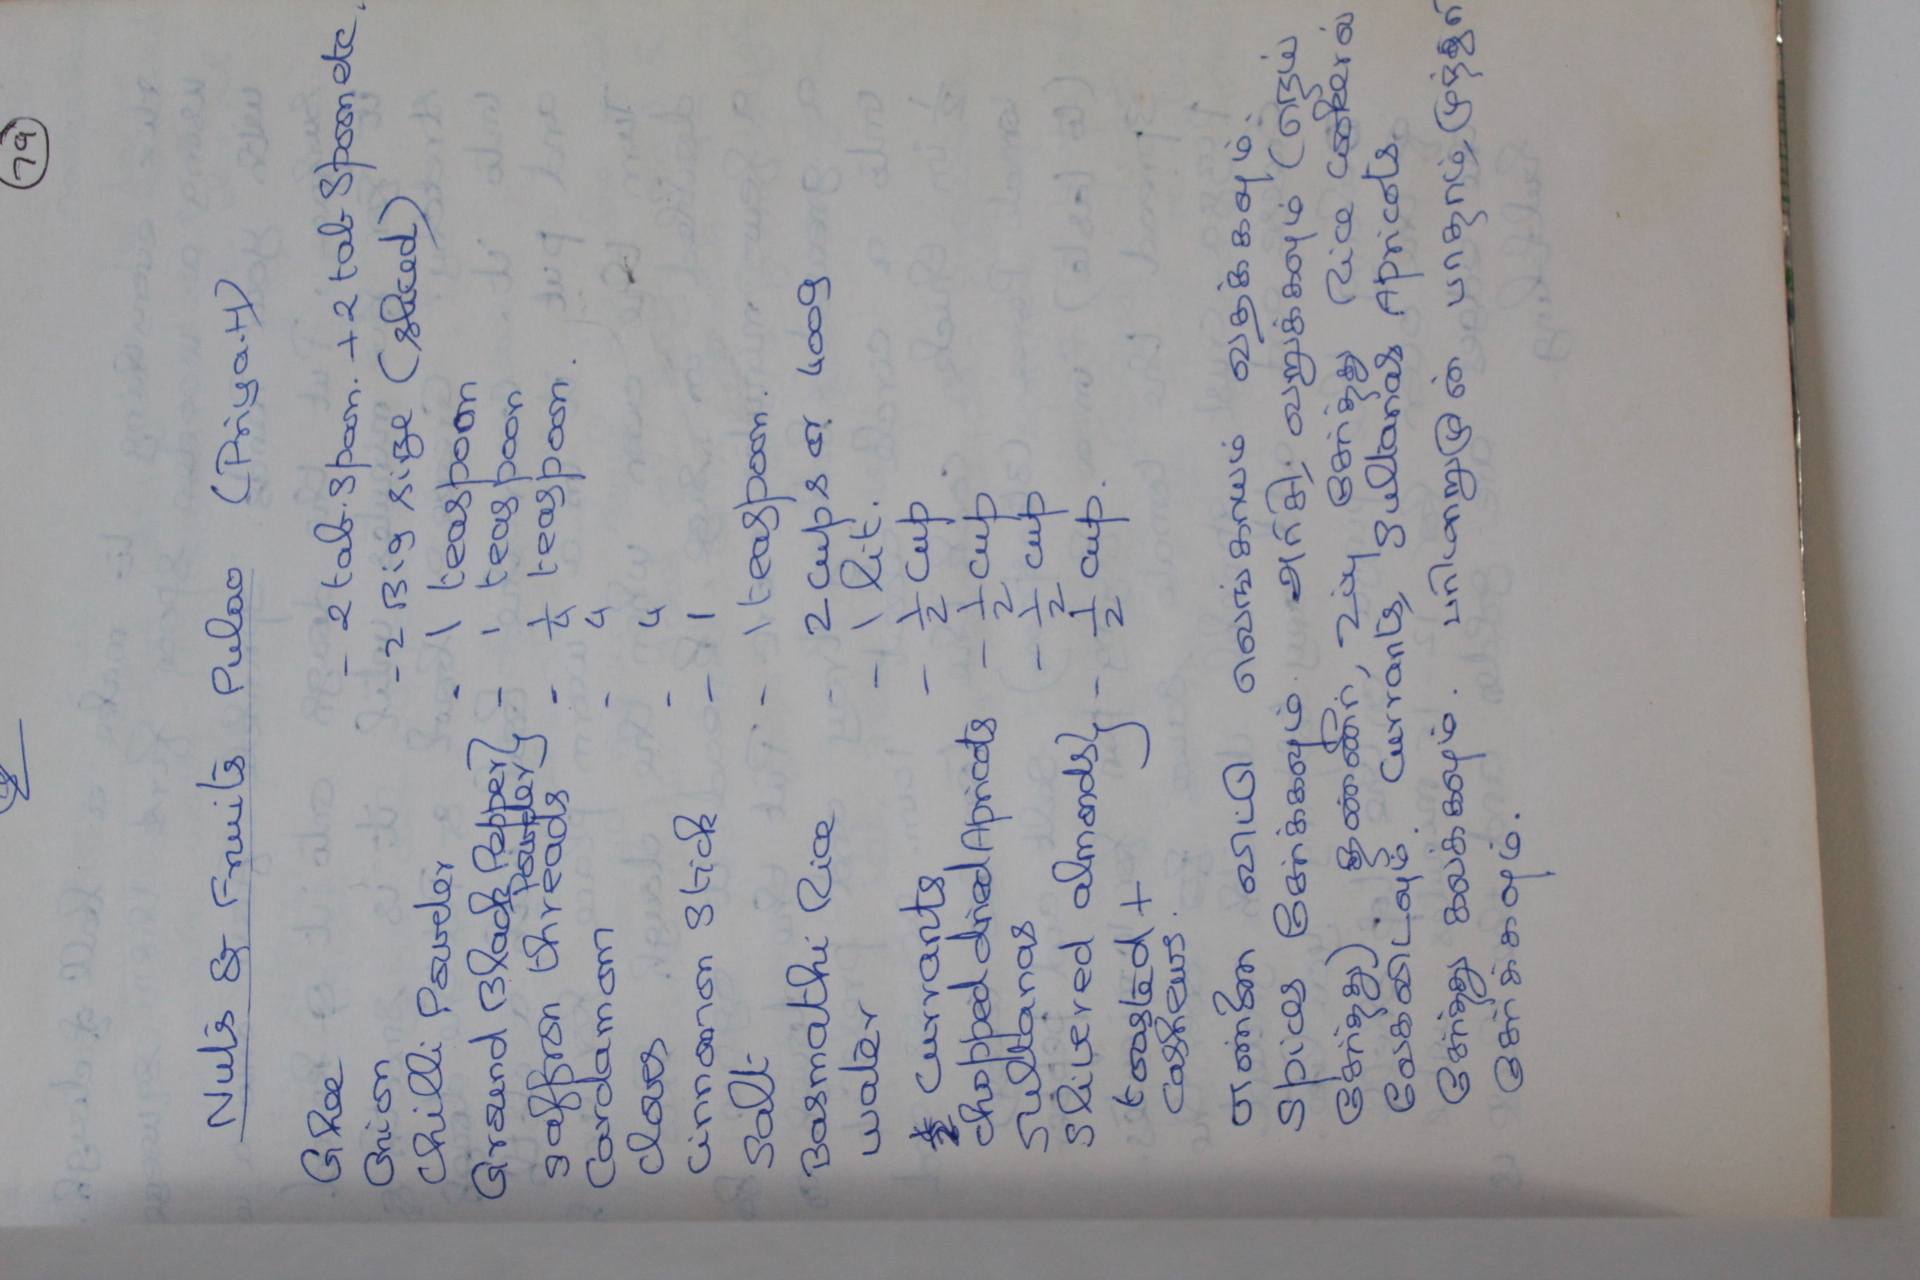 79
Nuts & Fruits Pulao (Priya.H)
Ghee - 2 tab.spoon. + 2 tab spoon etc.
Onion - 2 Big size (sliced)
Chilli Powder - 1 teaspoon
Ground Black Pepper Powder } - 1 teaspoon
Saffron threads - 1/4 teaspoon.
Cardamom - 4
cloves - 4
cinnamon stick - 1
Salt - 1 teaspoon.
Basmathi Rice - 2 cups or 400g
water - 1 lit.
currants - 1/2 cup
chopped dried Apricots - 1/2 cup
Sultanas - 1/2 cup
Slivered almonds } - 1/2 cup.
toasted +
cashews.
எண்ணெ விட்டு வெங்காயம் வதக்கவும்.
Spices சேர்க்கவும். அரிசி, வறுக்கவும் (நெய்
சேர்த்து). தண்ணீர், உப்பு சேர்த்து Rice cookerல்
வேகவிடவும். Currants, Sultanas Apricots
சேர்த்து கலக்கவும். பரிமாறுமுன் பாதாம், முந்திரி
சேர்க்கவும்.